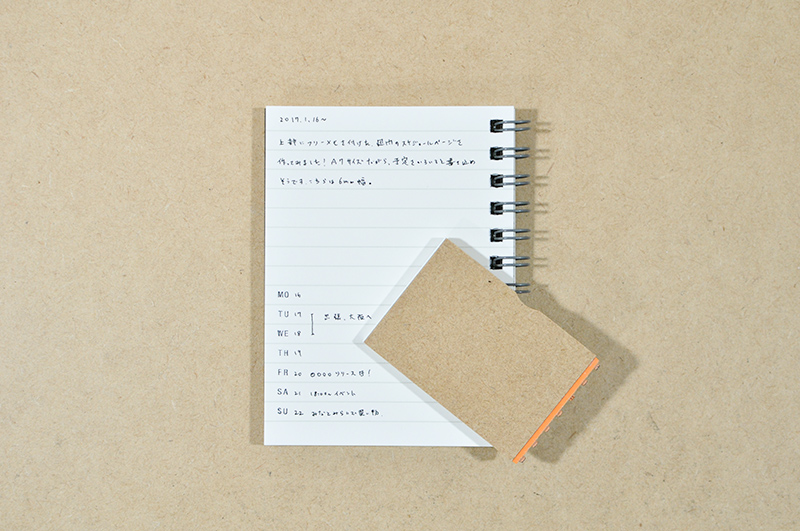 2017.1.16～
上部にフリーメモを付けた、週間のスケジュールページを
作ってみました！A7サイズながら、予定をいろいろと書き込め
そうです。こちらは6mm幅。
MO 16
TU 17 出張、大阪へ
WE 18
TH 19
FR 20 リリース日！
SA 21 イベント
SU 22 みなとみらいで買い物